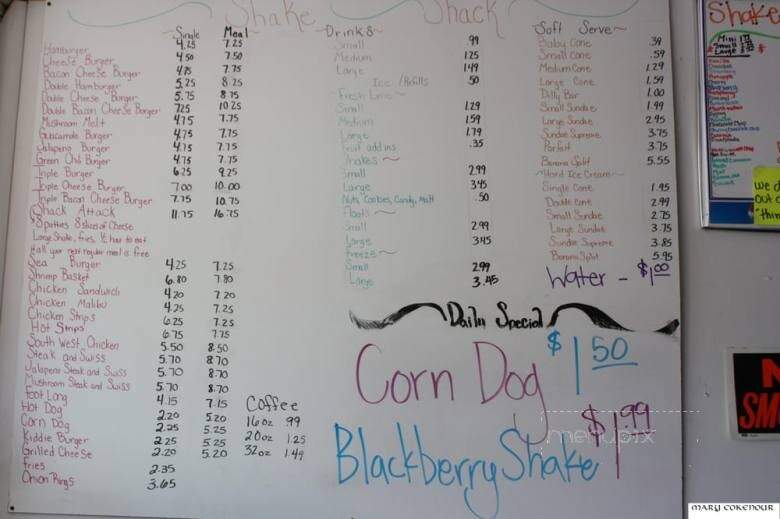 Shake Shack
Single Meal
Hamburger 4.25 7.25
Cheese Burger 4.50 7.50
Bacon Cheese Burger 4.75 7.75
Double Hamburger 5.25 8.25
Double Cheese Burger 5.75 8.75
Double Bacon Cheese Burger 7.25 10.25
Mushroom Melt 4.75 7.75
Guacamole Burger 4.75 7.75
Jalapeno Burger 4.75 7.75
Green Chili Burger 4.75 7.75
Triple Burger 6.25 9.25
Triple Cheese Burger 7.00 10.00
Triple Bacon Cheese Burger 7.75 10.75
Shack Attack 11.75 16.75
8 patties 8 slices of Cheese
Large Shake, fries, 1/2 hour to eat
it all your next regular meal is free
Sea Burger 4.25 7.25
Shrimp Basket 6.80 7.80
Chicken Sandwich 4.20 7.20
Chicken Malibu 4.25 7.25
Chicken Strips 6.25 7.25
Hot Strips 6.75 7.75
South West Chicken 5.50 8.50
Steak and Swiss 5.70 8.70
Jalapeno Steak and Swiss 5.70 8.70
Mushroom Steak and Swiss 5.70 8.70
Foot Long 4.15 7.15
Hot Dog 2.20 5.20
Corn Dog 2.25 5.25
Kiddie Burger 2.25 5.25
Grilled Cheese 2.20 5.20
Fries 2.35
Onion Rings 3.65
Coffee
16oz .99
20oz 1.25
32oz 1.49
Drinks~
Small .99
Medium 1.25
Large 1.49
Ice / Refills .50
~Fresh Lime~
Small 1.29
Medium 1.59
Large 1.79
Fruit add ins .35
Shakes~
Small 2.99
Large 3.45
Nuts, Cookies, Candy, Malt .50
Floats~
Small 2.99
Large 3.45
Freeze~
Small 2.99
Large 3.45
Soft Serve~
Baby Cone .39
Small Cone .59
Medium Cone 1.29
Large Cone 1.59
Dilly Bar 1.00
Small Sundae 1.99
Large Sundae 2.95
Sundae Supreme 3.75
Parfait 3.75
Banana Split 5.55
~Hard Ice Cream~
Single Cone 1.95
Double Cone 2.99
Small Sundae 2.75
Large Sundae 3.75
Sundae Supreme 3.85
Banana Split 5.95
Water - $1.00
Daily Special
Corn Dog $1.50
Blackberry Shake $1.99
menupix
Shake
Mini
Small
Large
we d
out o
"thin
N
SM
MARY COKENOUR